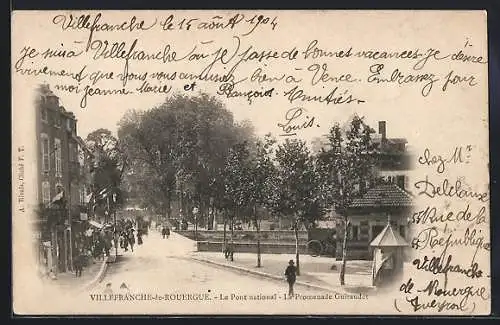 Villefranche le 15 août 1904
je suis à Villefranche où j'y passe de bonnes vacances. Je désire
vivement que vous vous amusiez bien à Vence. Embrassez pour
moi Jeanne Marie et François. Amitiés
Louis
chez Mr
Delclaux
rue de la
République
Villefranche
de Rouergue
(Aveyron)
A. Rivals, Cliché F. T.
VILLEFRANCHE-de-ROUERGUE. - Le Pont national - La Promenade Guiraudet